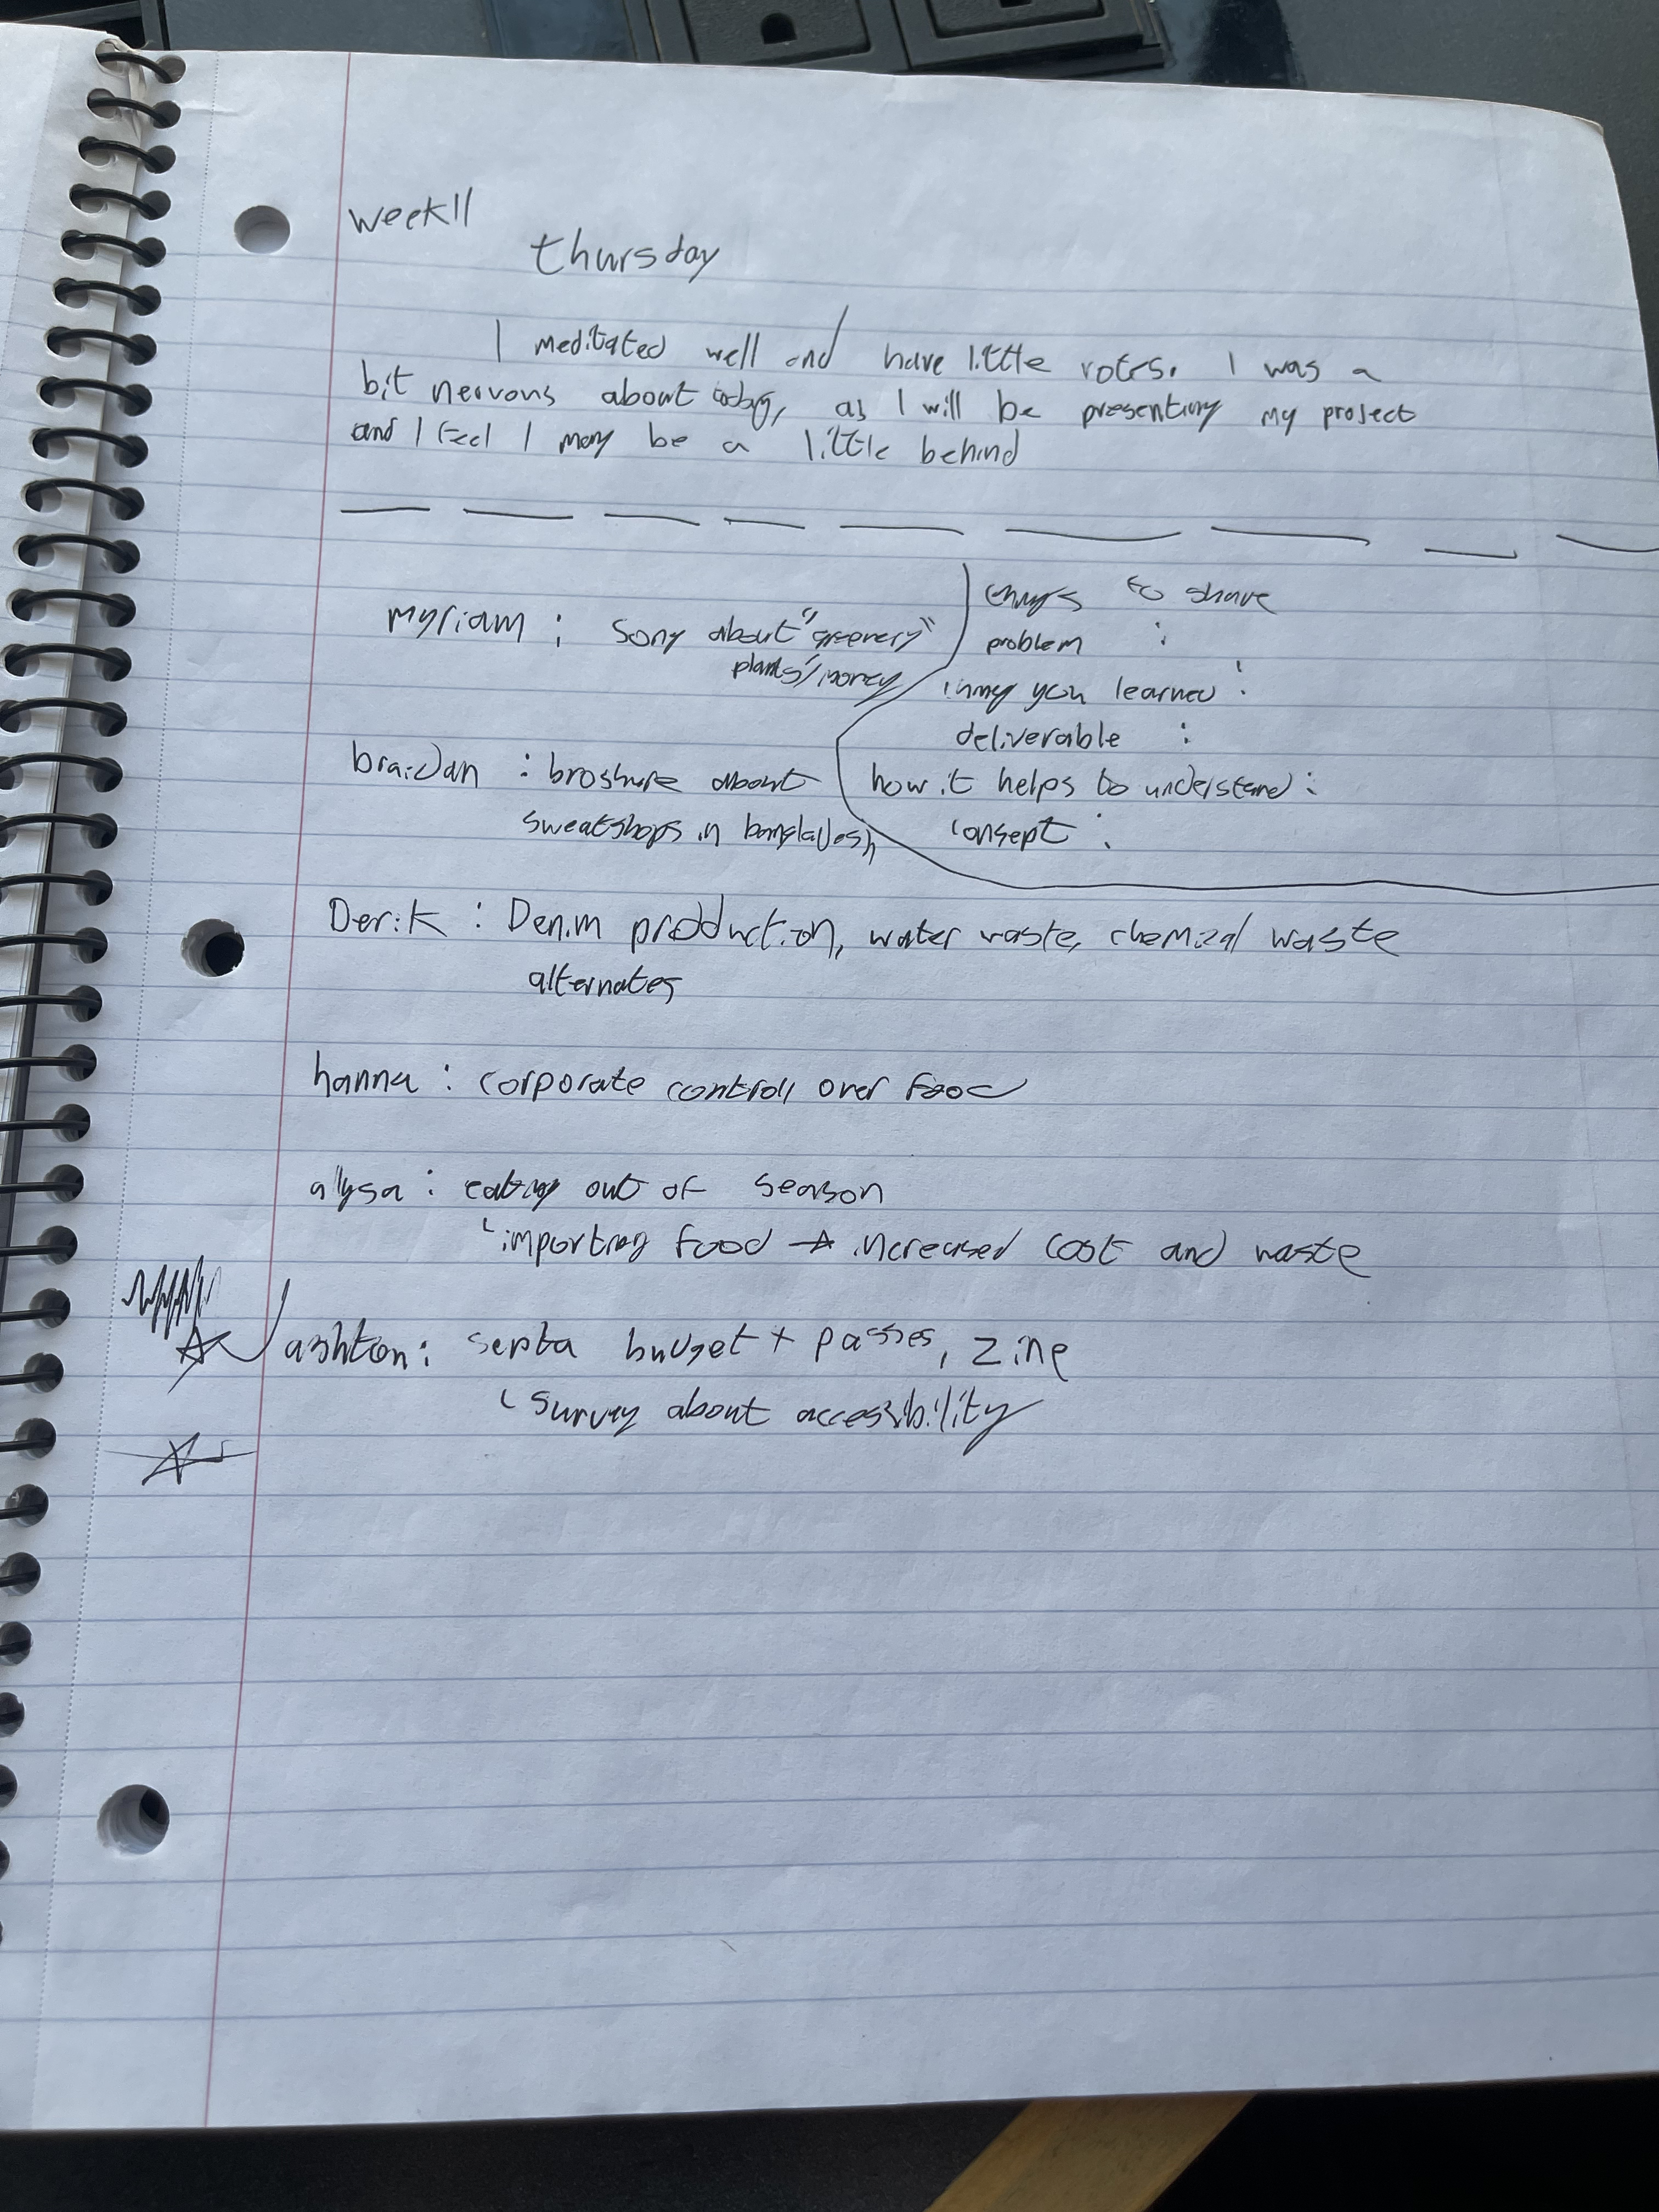 week 11
thursday
I meditated well and have little notes. I was a
bit nervous about today, as I will be presenting my project
and I feel I may be a little behind
myriam : Song about "greenery"
plants/money
braidan : broshure about
sweatshops in bangladesh
things to share
problem :
thing you learned :
deliverable :
how it helps to understand :
consept :
Derik : Denim production, water waste, chemical waste
alternates
hanna : corporate controll over food
alysa : eating out of season
importing food → increased cost and waste
ashton : septa budget + passes, zine
survey about accesibility